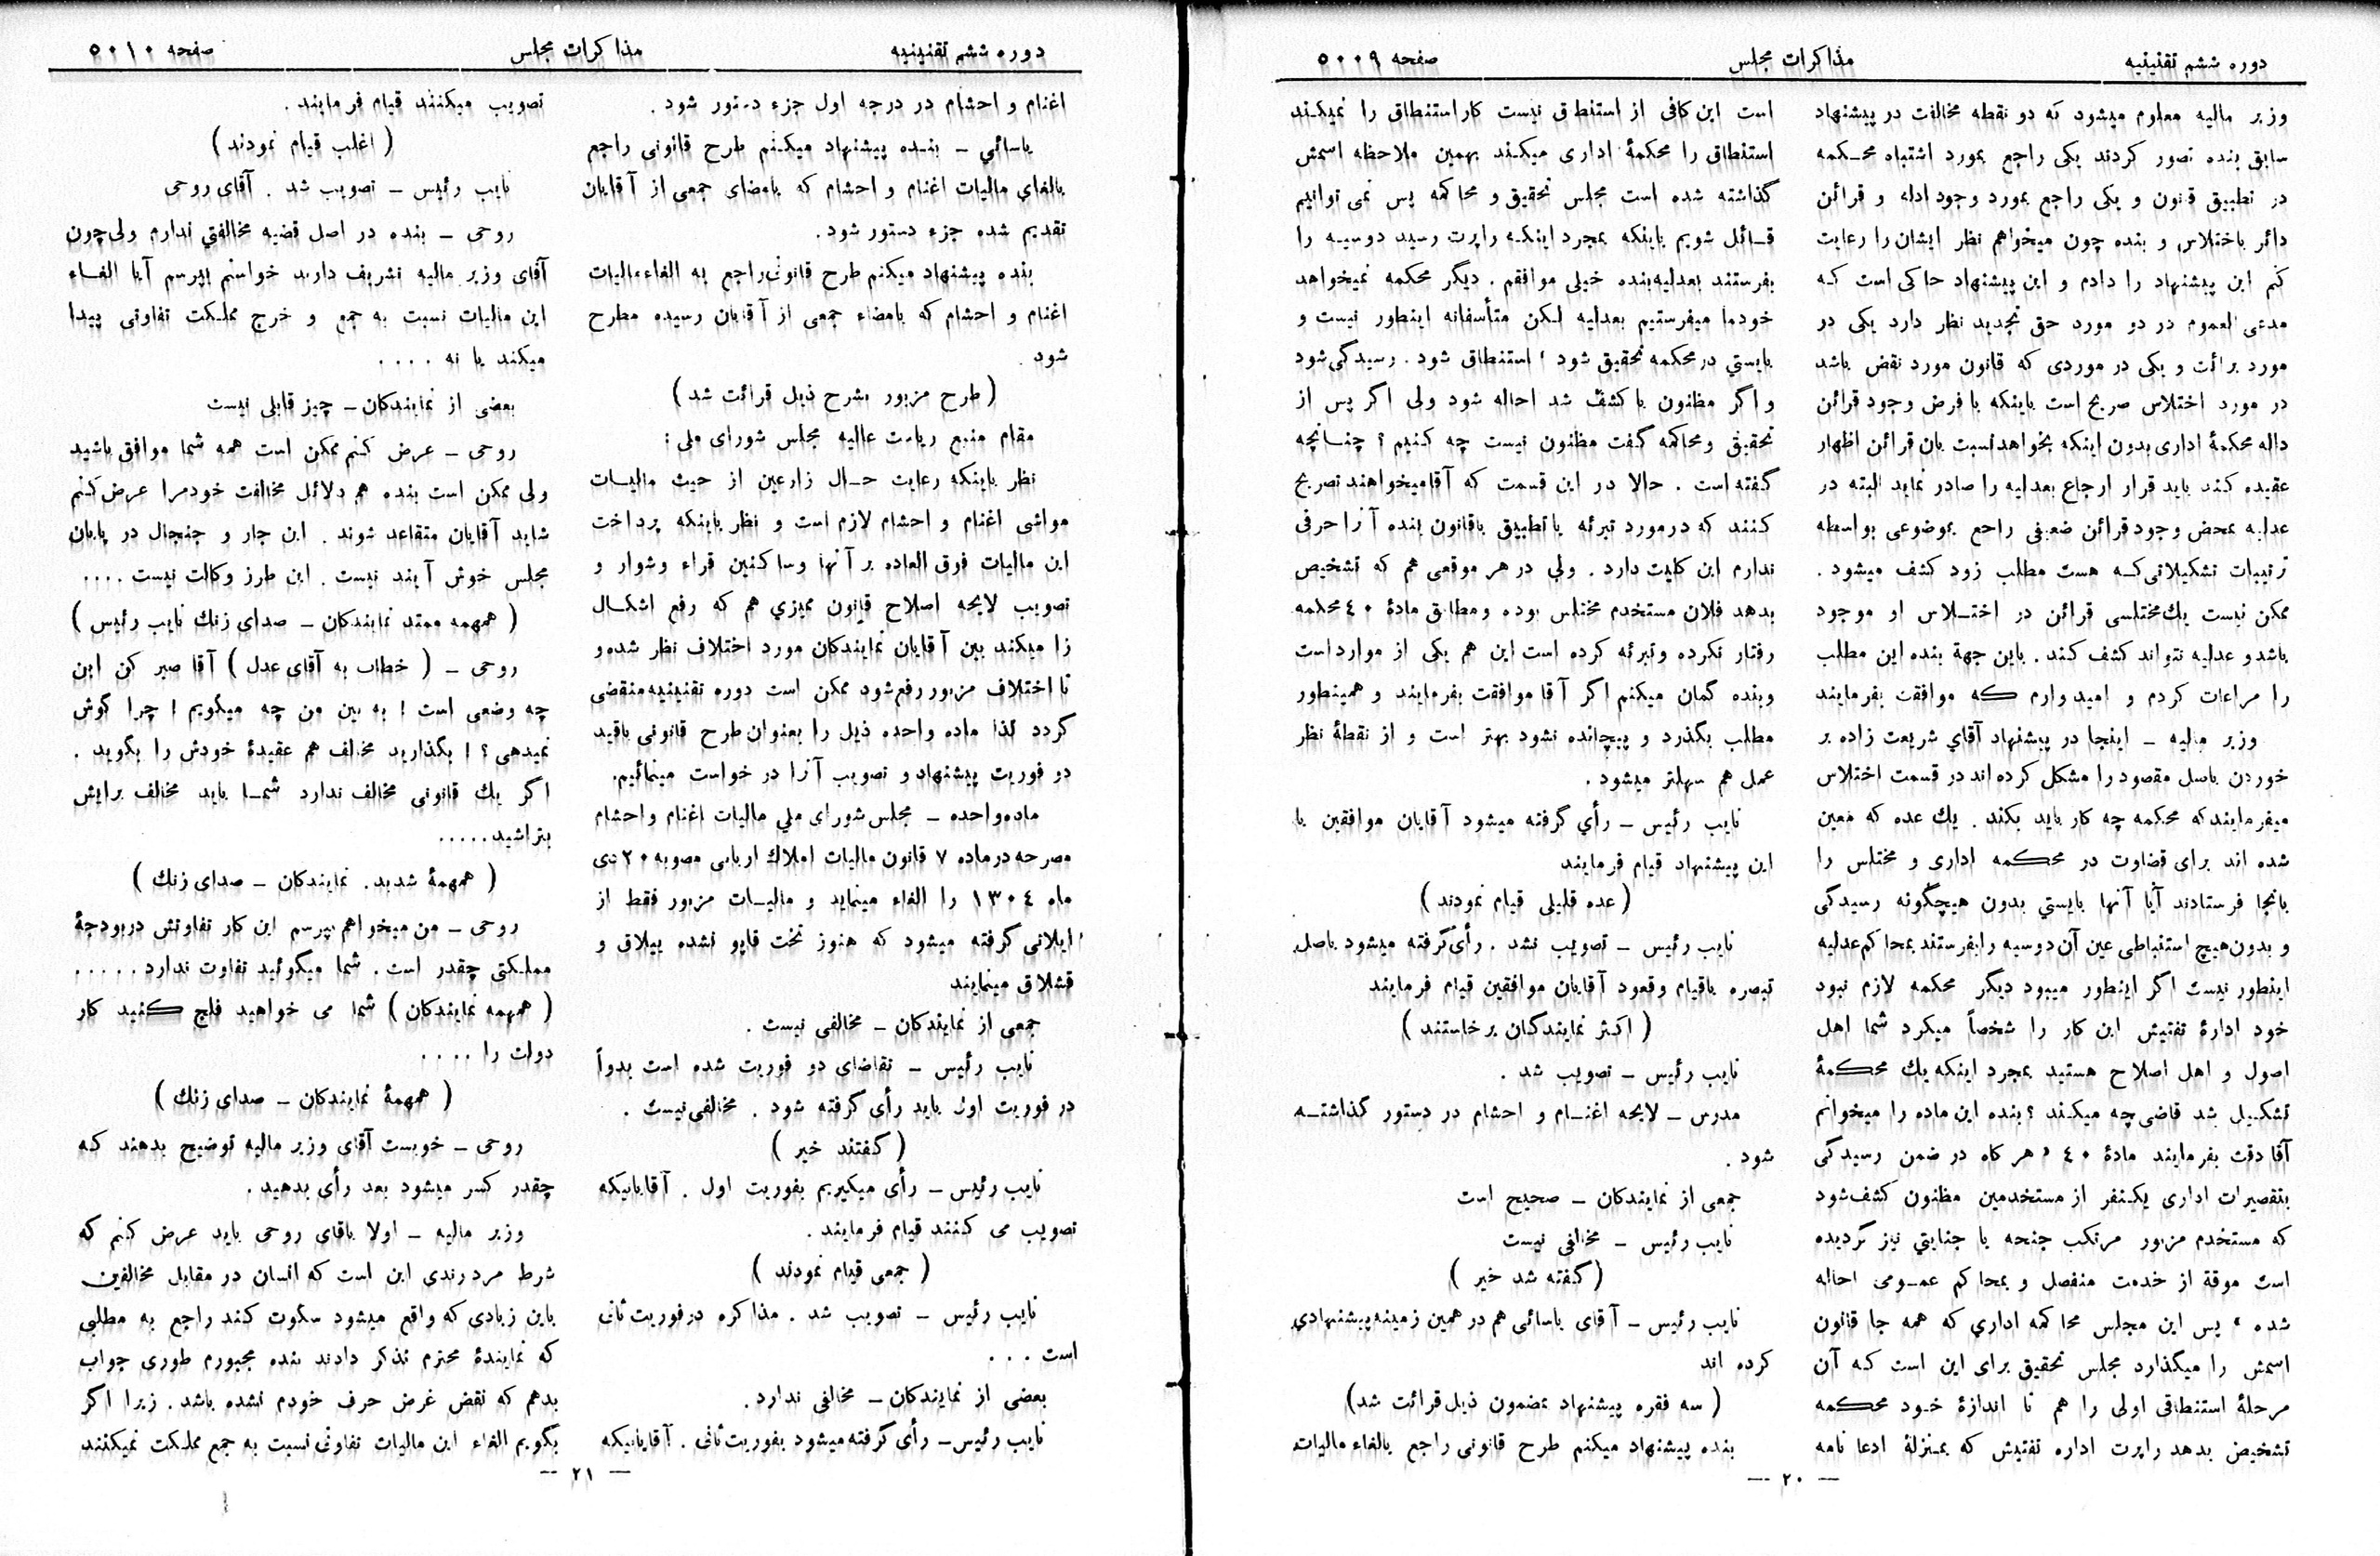 دوره ششم تقنینیه
مذاکرات مجلس
صفحه ۵۰۰۹
وزیر مالیه معلوم میشود که دو نقطه مخالفت در پیشنهاد
سابق بنده تصور کردند یکی راجع بمورد اشتباه محکمه
در تطبیق قانون و یکی راجع بمورد وجود ادله و قرائن
دائر باختلاس و بنده چون میخواهم نظر ایشان را رعایت
کنم این پیشنهاد را دادم و این پیشنهاد حاکی است که
مدعی العموم در دو مورد حق تجدید نظر دارد یکی در
مورد برائت و یکی در موردی که قانون مورد نقض باشد
در مورد اختلاس صریح است باینکه با فرض وجود قرائن
داله محکمهٔ اداری بدون اینکه بخواهد نسبت بان قرائن اظهار
عقیده کند باید قرار ارجاع بعدلیه را صادر نماید البته در
عدلیه بمحض وجود قرائن ضعیفی راجع بموضوعی بواسطه
ترتیبات تشکیلاتی که هست مطلب زود کشف میشود .
ممکن نیست یك مختلسی قرائن در اختلاس او موجود
باشد و عدلیه نتواند کشف کند . باین جهة بنده این مطلب
را مراعات کردم و امیدوارم که موافقت بفرمایند
وزیر مالیه ــ اینجا در پیشنهاد آقای شریعت زاده بر
خوردن باصل مقصود را مشکل کرده‌اند در قسمت اختلاس
میفرمایند که محکمه چه کار باید بکند . یك عده که معین
شده اند برای قضاوت در محکمه اداری و مختلس را
بانجا فرستادند آیا آنها بایستی بدون هیچگونه رسیدگی
و بدون هیچ استنباطی عین آن دوسیه را بفرستند بمحاکم عدلیه
اینطور نیست اگر اینطور میبود دیگر محکمه لازم نبود
خود ادارهٔ تفتیش این کار را شخصاً میکرد شما اهل
اصول و اهل اصلاح هستید بمجرد اینکه یك محکمهٔ
تشکیل شد قاضی چه میکند ؟ بنده این ماده را میخوانم
آقا دقت بفرمایند مادهٔ ۴۰ « هرگاه در ضمن رسیدگی
بتقصیرات اداری یکنفر از مستخدمین مظنون کشف شود
که مستخدم مزبور مرتکب جنحه یا جنایتی نیز گردیده
است موقة از خدمت منفصل و بمحاکم عمومی احاله
شده » پس این مجلس محاکمه اداری که همه جا قانون
اسمش را میگذارد مجلس تحقیق برای این است که آن
مرحلهٔ استنطاقی اولی را هم تا اندازهٔ خود محکمه
تشخیص بدهد راپرت اداره تفتیش که بمنزلهٔ ادعا نامه
است این کافی از استنطاق نیست کار استنطاق را نمیکند
استنطاق را محکمهٔ اداری میکند بهمین ملاحظه اسمش
گذاشته شده است مجلس تحقیق و محاکمه پس نمی توانیم
قائل شویم باینکه بمجرد اینکه راپرت رسید دوسیه را
بفرستند بعدلیه بنده خیلی موافقم . دیگر محکمه نمیخواهد
خودما میفرستیم بعدلیه لکن متأسفانه اینطور نیست و
بایستی در محکمه تحقیق شود ، استنطاق شود . رسیدگی شود
و اگر مظنون یا کشف شد احاله شود ولی اگر پس از
تحقیق ومحاکمه گفت مظنون نیست چه کنیم ؟ چنانچه
گفته است . حالا در این قسمت که آقا میخواهند تصریح
کنند که در مورد تبرئه یا تطبیق باقانون بنده آنرا حرفی
ندارم این کلیت دارد . ولی در هر موقعی هم که تشخیص
بدهد فلان مستخدم مختلس بوده و مطابق مادهٔ ۴۰ محکمه
رفتار نکرده و تبرئه کرده است این هم یکی از موارد است
وبنده گمان میکنم اگر آقا موافقت بفرمایند و همینطور
مطلب بگذرد و پیچانده نشود بهتر است و از نقطهٔ نظر
عمل هم سهلتر میشود .
نایب رئیس ــ رأی گرفته میشود آقایان موافقین با
این پیشنهاد قیام فرمایند
( عده قلیلی قیام نمودند )
نایب رئیس ــ تصویب نشد . رأی گرفته میشود باصل
تبصره باقیام وقعود آقایان موافقین قیام فرمایند
( اکثر نمایندگان برخاستند )
نایب رئیس ــ تصویب شد .
مدرس ــ لایحه اغنام و احشام در دستور گذاشته
شود .
جمعی از نمایندگان ــ صحیح است
نایب رئیس ــ مخالفی نیست
( گفته شد خیر )
نایب رئیس ــ آقای یاسائی هم در همین زمینه پیشنهادی
کرده اند
( سه فقره پیشنهاد بمضمون ذیل قرائت شد )
بنده پیشنهاد میکنم طرح قانونی راجع بالغاء مالیات
— ۲۰ —
دوره ششم تقنینیه
مذاکرات مجلس
صفحه ۵۰۱۰
اغنام و احشام در درجه اول جزء دستور شود .
یاسائی ــ بنده پیشنهاد میکنم طرح قانونی راجع
بالغای مالیات اغنام و احشام که بامضای جمعی از آقایان
تقدیم شده جزء دستور شود .
بنده پیشنهاد میکنم طرح قانونی راجع به الغاء مالیات
اغنام و احشام که بامضاء جمعی از آقایان رسیده مطرح
شود .
( طرح مزبور بشرح ذیل قرائت شد )
مقام منیع ریاست عالیه مجلس شورای ملی :
نظر باینکه رعایت حال زارعین از حیث مالیات
مواشی اغنام و احشام لازم است و نظر باینکه پرداخت
این مالیات فوق العاده بر آنها وساکنین قراء وشوار و
تصویب لایحه اصلاح قانون ممیزی هم که رفع اشکال
را میکند بین آقایان نمایندگان مورد اختلاف نظر شده و
تا اختلاف مزبور رفع شود ممکن است دوره تقنینیه منقضی
گردد لذا ماده واحده ذیل را بعنوان طرح قانونی باقید
دو فوریت پیشنهاد و تصویب آنرا در خواست مینمائیم.
ماده واحده ــ مجلس شورای ملی مالیات اغنام و احشام
مصرحه در ماده ۷ قانون مالیات املاك اربابی مصوبه ۲۰ دی
ماه ۱۳۰۴ را الغاء مینماید و مالیات مزبور فقط از
ایلاتی گرفته میشود که هنوز تخت قاپو نشده ییلاق و
قشلاق مینمایند
جمعی از نمایندگان ــ مخالفی نیست .
نایب رئیس ــ تقاضای دو فوریت شده است بدواً
در فوریت اول باید رأی گرفته شود . مخالفی نیست .
( گفتند خیر )
نایب رئیس ــ رأی میگیریم بفوریت اول . آقایانیکه
تصویب می کنند قیام فرمایند .
( جمعی قیام نمودند )
نایب رئیس ــ تصویب شد . مذاکره در فوریت ثانی
است . . .
بعضی از نمایندگان ــ مخالفی ندارد .
نایب رئیس ــ رأی گرفته میشود بفوریت ثانی . آقایانیکه
تصویب میکنند قیام فرمایند .
( اغلب قیام نمودند )
نایب رئیس ــ تصویب شد . آقای روحی
روحی ــ بنده در اصل قضیه مخالفتی ندارم ولی چون
آقای وزیر مالیه تشریف دارند خواستم بپرسم آیا الغاء
این مالیات نسبت به جمع و خرج مملکت تفاوتی پیدا
میکند یا نه . . . .
بعضی از نمایندگان ــ چیز قابلی نیست
روحی ــ عرض کنم ممکن است همه شما موافق باشید
ولی ممکن است بنده هم دلائل مخالفت خودمرا عرض کنم
شاید آقایان متقاعد شوند . این جار و جنجال در پایان
مجلس خوش آیند نیست . این طرز وکالت نیست . . . .
( همهمه ممتد نمایندگان ــ صدای زنك نایب رئیس )
روحی ــ ( خطاب به آقای عدل ) آقا صبر کن این
چه وضعی است ! به بین من چه میگویم ! چرا گوش
نمیدهی ؟ ! بگذارید مخالف هم عقیدهٔ خودش را بگوید .
اگر یك قانونی مخالف ندارد شما باید مخالف برایش
بتراشید . . . . .
( همهمهٔ شدید . نمایندگان ــ صدای زنك )
روحی ــ من میخواهم بپرسم این کار تفاوتش در بودجهٔ
مملکتی چقدر است . شما میگوئید تفاوت ندارد . . . . .
( همهمه نمایندگان ) شما می خواهید فلج کنید کار
دولت را . . . .
( همهمهٔ نمایندگان ــ صدای زنك )
روحی ــ خوبست آقای وزیر مالیه توضیح بدهند که
چقدر کسر میشود بعد رأی بدهید .
وزیر مالیه ــ اولا باقای روحی باید عرض کنم که
شرط مرد رندی این است که انسان در مقابل مخالفین
باین زیادی که واقع میشود سکوت کند راجع به مطلبی
که نمایندهٔ محترم تذکر دادند بنده مجبورم طوری جواب
بدهم که نقض غرض حرف خودم نشده باشد . زیرا اگر
بگویم الغاء این مالیات تفاوتی نسبت به جمع مملکت نمیکنند
— ۲۱ —